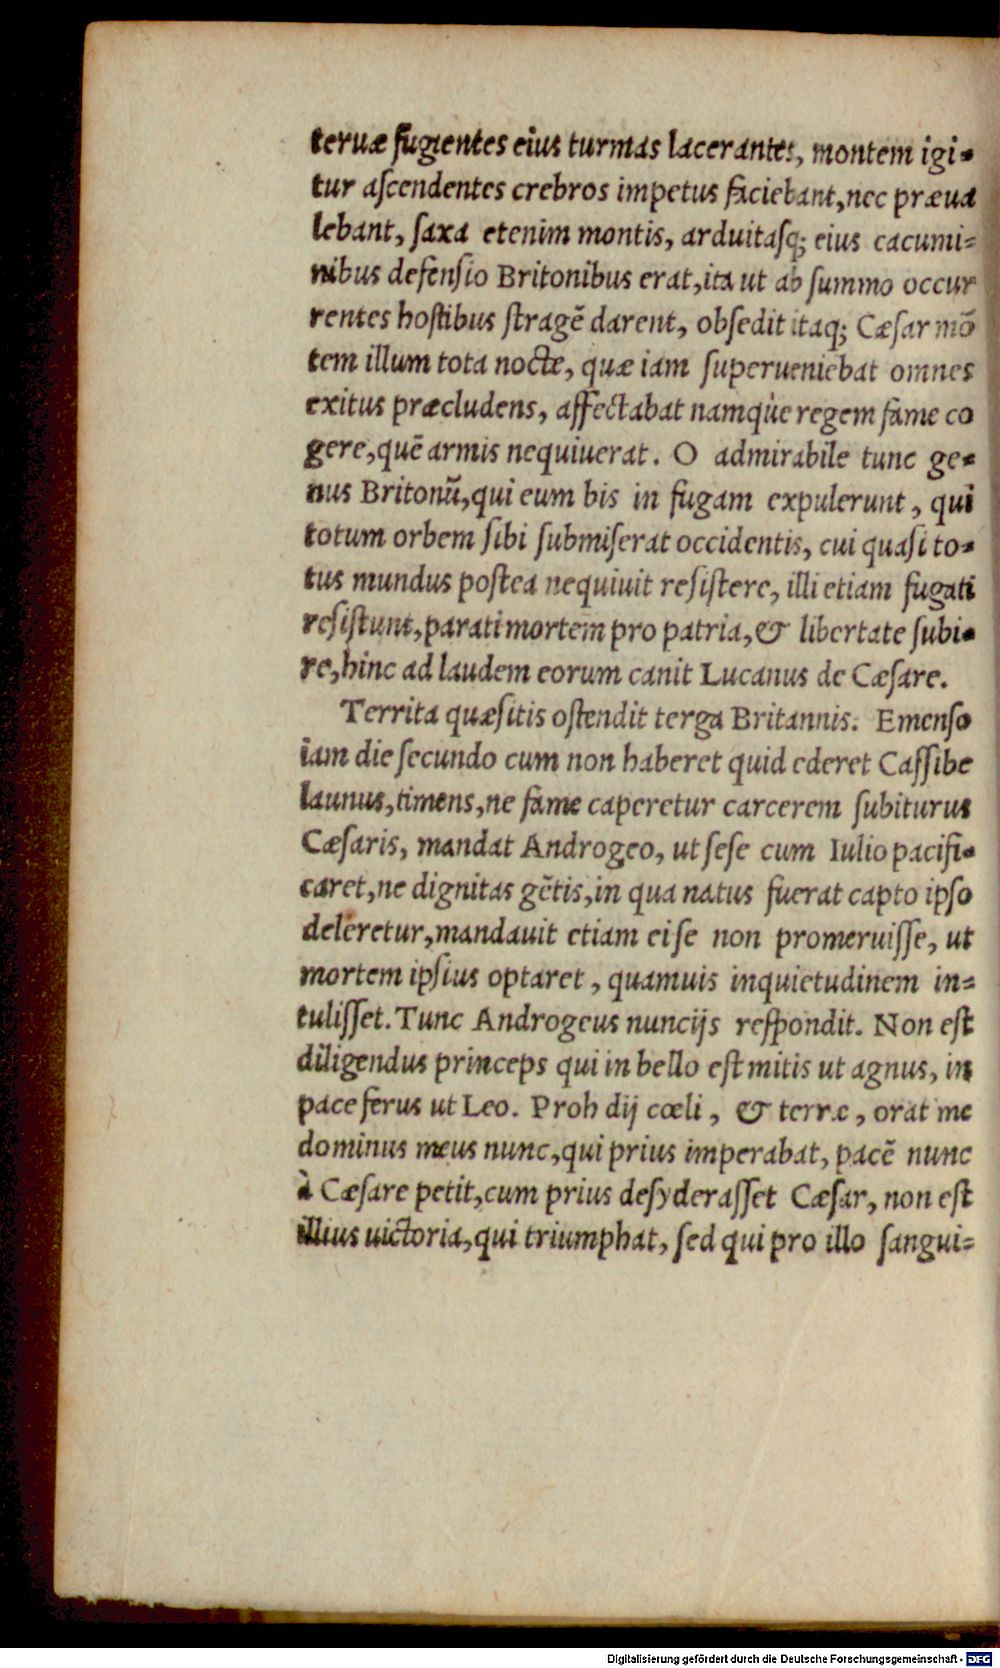 teruæ fugientes eius turmas lacerantes, montem igi-
tur aſcendentes crebros impetus faciebant, nec præua
lebant, ſaxa etenim montis, arduitasq; eius cacumi-
nibus defenſio Britonibus erat, ita ut ab ſummo occur
rentes hoſtibus ſtragē darent, obſedit itaq; Cæſar mō
tem illum tota nocte, quæ iam ſuperueniebat omnes
exitus præcludens, affectabat namq́ue regem fame co
gere, quē armis nequiuerat. O admirabile tunc ge-
nus Britonū, qui eum bis in fugam expulerunt, qui
totum orbem ſibi ſubmiſerat occidentis, cui quaſi to-
tus mundus poſtea nequiuit reſiſtere, illi etiam fugati
reſiſtunt, parati mortem pro patria, & libertate ſubi-
re, hinc ad laudem eorum canit Lucanus de Cæſare.
Territa quæſitis oſtendit terga Britannis. Emenſo
iam die ſecundo cum non haberet quid ederet Caſſibe
launus, timens, ne fame caperetur carcerem ſubiturus
Cæſaris, mandat Androgeo, ut ſeſe cum Iulio pacifi-
caret, ne dignitas gētis, in qua natus fuerat capto ipſo
deleretur, mandauit etiam ei ſe non promeruiſſe, ut
mortem ipſius optaret, quamuis inquietudinem in-
tuliſſet. Tunc Androgeus nuncijs reſpondit. Non eſt
diligendus princeps qui in bello eſt mitis ut agnus, in
pace ferus ut Leo. Proh dij cœli, & terræ, orat me
dominus meus nunc, qui prius imperabat, pacē nunc
à Cæſare petit, cum prius deſyderaſſet Cæſar, non eſt
illius uictoria, qui triumphat, ſed qui pro illo ſangui-
Digitalisierung gefördert durch die Deutsche Forschungsgemeinschaft - DFG